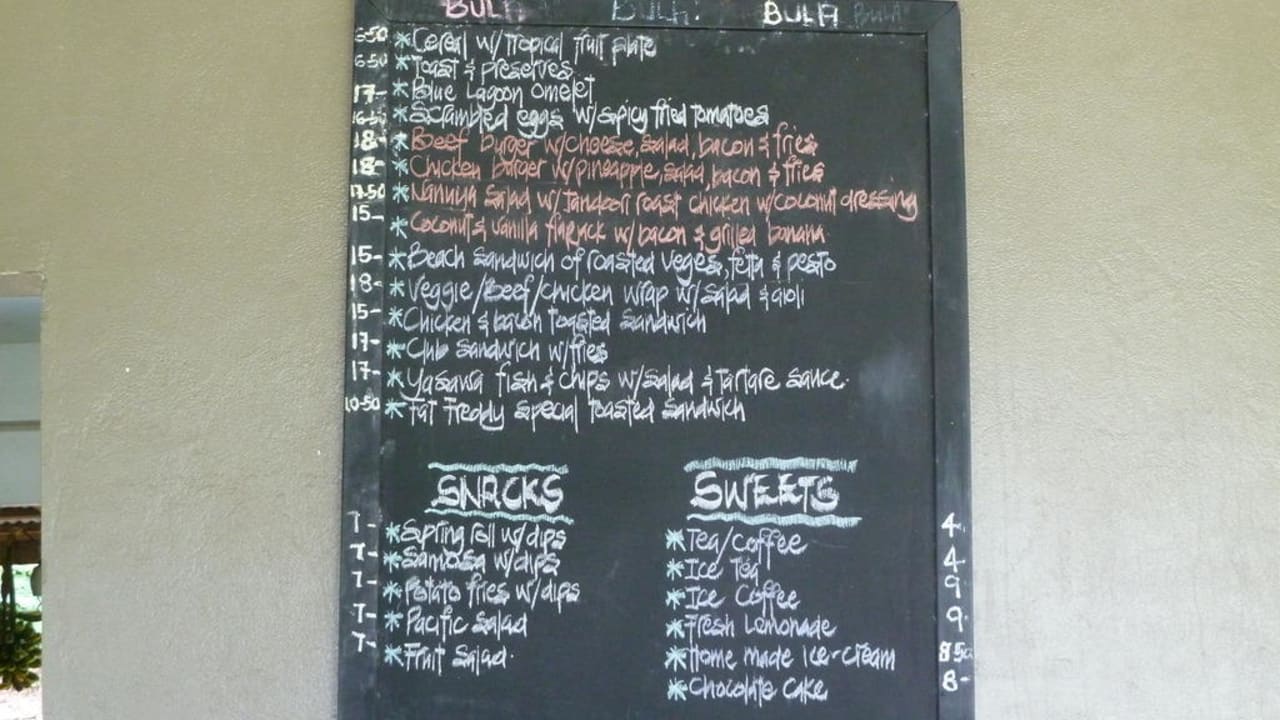 BULA BULA BULA BULA
6-50 *Cereal w/Tropical fruit plate
6-50 *Toast & preserves
17- *Blue Lagoon Omelet
16-50 *Scrambled eggs w/spicy fried tomatoes
18- *Beef burger w/cheese, salad, bacon & fries
18- *Chicken burger w/pineapple, salad, bacon & fries
17.50 *Nanuya Salad w/Tandoori roast chicken w/coconut dressing
15- *Coconut & vanilla flapjack w/bacon & grilled banana
15- *Beach Sandwich of roasted veges, feta & pesto
18- *Veggie/Beef/chicken wrap w/salad & aioli
15- *Chicken & bacon toasted sandwich
17- *Club sandwich w/fries
17- *Yasawa fish & chips w/salad & tartare sauce.
10-50 *Fat Freddy special toasted sandwich
SNACKS
7- *Spring roll w/dips
7- *Samosa w/dips
7- *Potato fries w/dips
7- *Pacific Salad
7- *Fruit Salad.
SWEETS
*Tea/coffee 4.
*Ice Tea 4
*Ice Coffee 9
*Fresh Lemonade 9.
*Home made ice-cream 8 50
*Chocolate Cake 8-